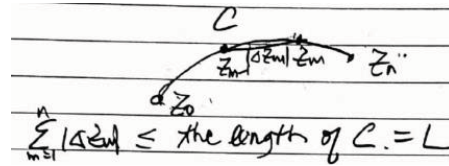 C
Z_{m-1} |ΔZ_m| Z_m Z_n
Z_0
\sum_{m=1}^{n} |ΔZ_m| ≤ the length of C. = L